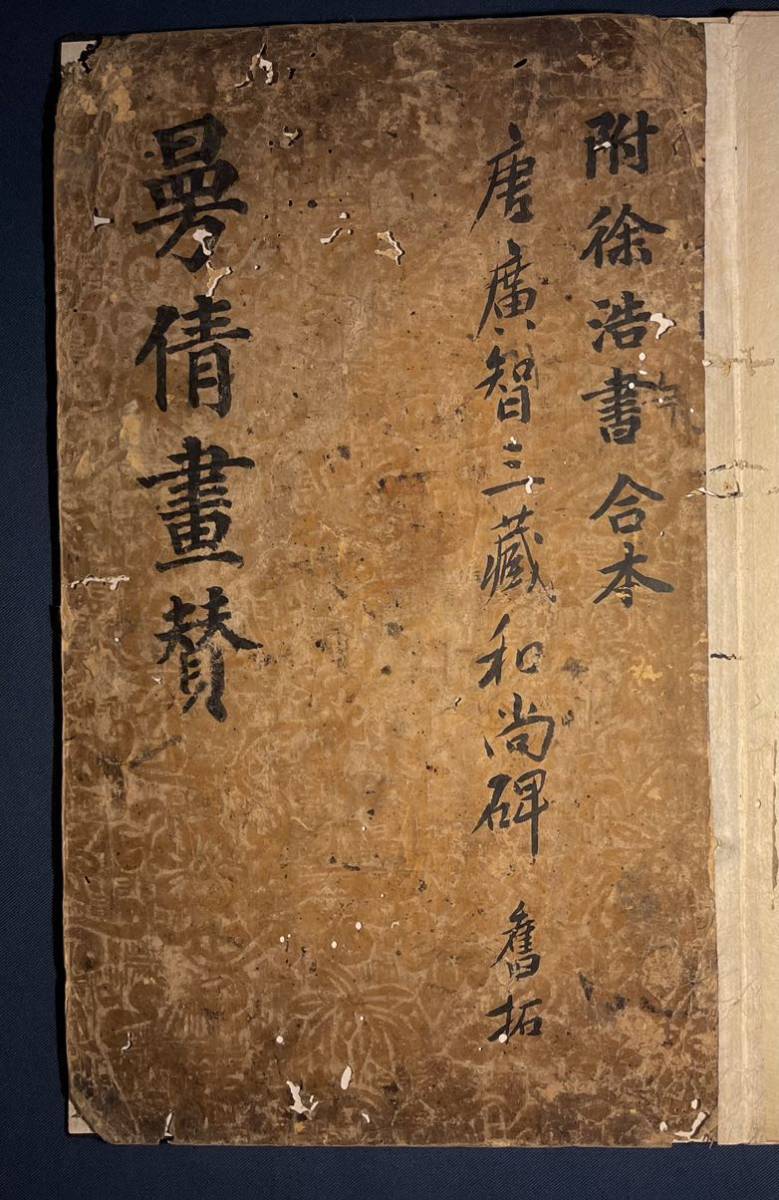 附徐浩書合本
唐廣智三藏和尚碑 舊拓
曼倩畫赞